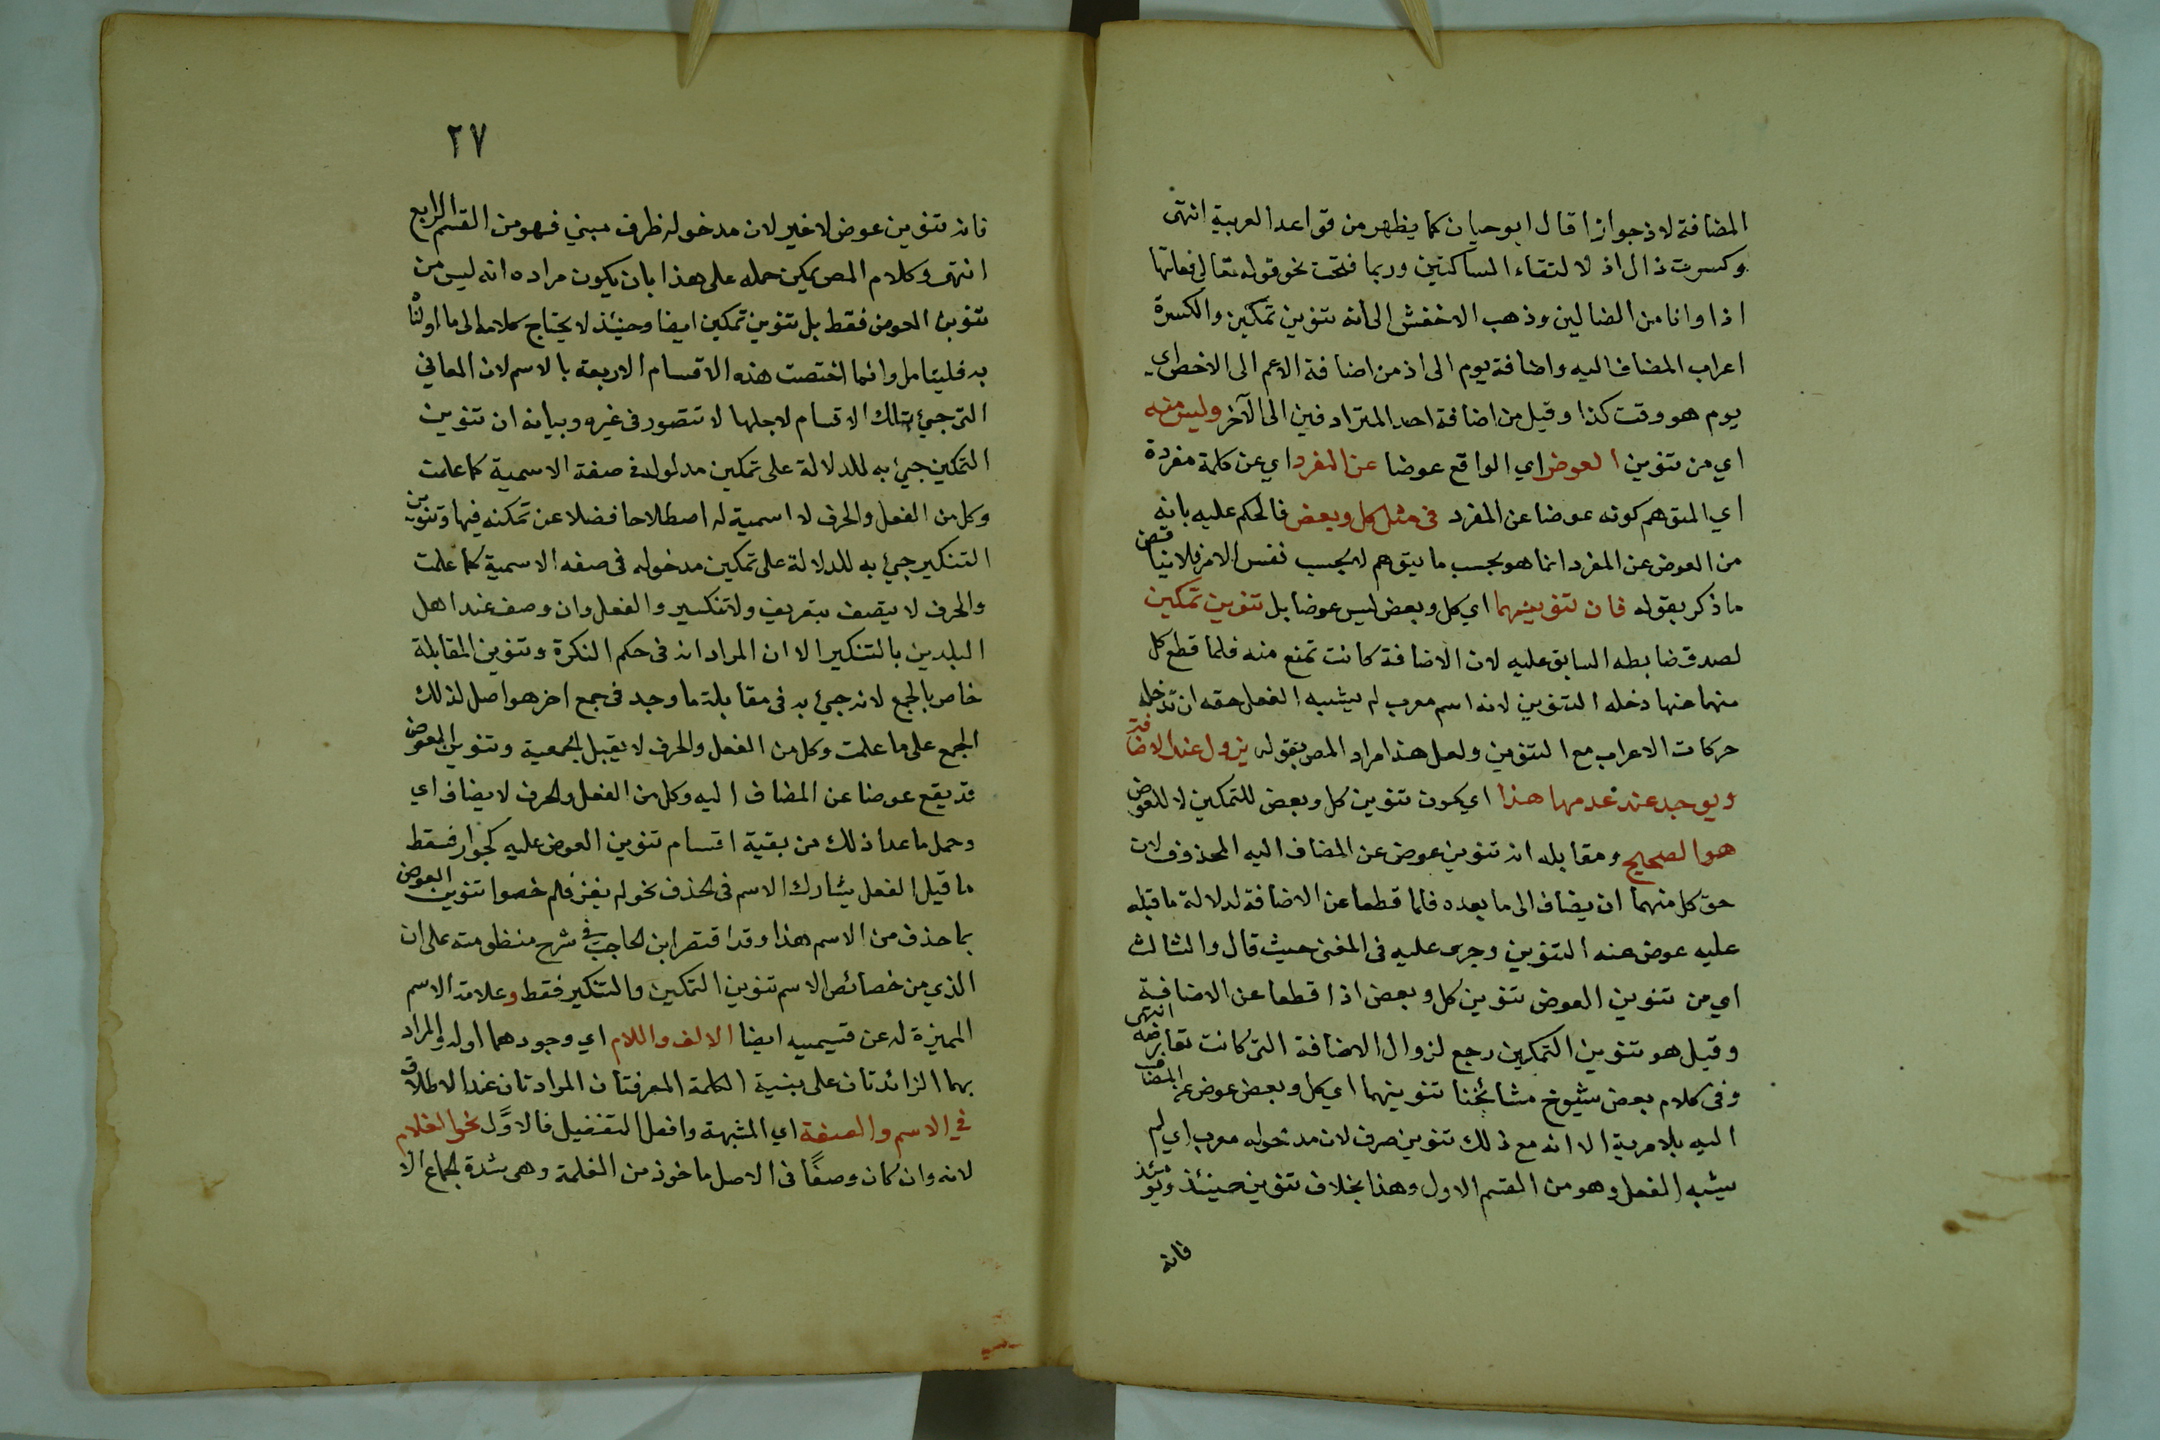 المضافة لاذ جوازا قال ابو حيان كما يظهر من قواعد العربية انتهى
وكسرت ذال اذ لالتقاء الساكنين وربما فتحت نحو قوله تعالى فعلتها
اذا وانا من الضالين وذهب الاخفش الى انه تنوين تمكين والكسرة
اعراب المضاف اليه واضافة يوم الى اذ من اضافة الاعم الى الاخص اي
يوم هو وقت كذا وقيل من اضافة احد المترادفين الى الآخر وليس منه
اي من تنوين العوض اي الواقع عوضا عن المفرد اي عن كلمة مفردة
اي المتوهم كونه عوضا عن المفرد في مثل كل وبعض فالحكم عليه بانه
من العوض عن المفرد انما هو بحسب ما يتوهم لا بحسب نفس الامر فلا يناقض
ما ذكر بقوله فان تنوينهما اي كل وبعض ليس عوضا بل تنوين تمكين
لصدق ضابطه السابق عليه لان الاضافة كانت تمنع منه فلما قطع كل
منهما عنها دخله التنوين لانه اسم معرب لم يشبه الفعل حقه ان تدخله
حركات الاعراب مع التنوين ولعل هذا مراد المص بقوله يزول عند الاضافة
ويوجد عند عدمها هذا اي كون تنوين كل وبعض للتمكين لا للعوض
هو الصحيح ومقابله انه تنوين عوض عن المضاف اليه المحذوف لان
حق كل منهما ان يضاف الى ما بعده فلما قطعا عن الاضافة لدلالة ما قبله
عليه عوض عنه التنوين وجرى عليه في المغنى حيث قال والثالث
اي من تنوين العوض تنوين كل وبعض اذا قطعا عن الاضافة
وقيل هو تنوين التمكين رجع لزوال الاضافة التى كانت تعارضه انتهى
وفى كلام بعض شيوخ مشائخنا تنوينهما اي كل وبعض عوض عن المضاف
اليه بلا مرية الا انه مع ذلك تنوين صرف لان مدخوله معرب اي لم
يشبه الفعل وهو من القسم الاول وهذا بخلاف تنوين حينئذ ويومئذ
فانه
٢٧
فانه تنوين عوض لا غير لان مدخوله ظرف مبني فهو من القسم الرابع
انتهى وكلام المص يمكن حمله على هذا بان يكون مراده انه ليس من
تنوين العوض فقط بل تنوين تمكين ايضا وحينئذ لا يحتاج كلامه الى ما اولنا
به فليتامل وانما اختصت هذه الاقسام الاربعة بالاسم لان المعاني
التى جيئ بتلك الاقسام لاجلها لا تتصور فى غيره وبيانه ان تنوين
التمكين جيئ به للدلالة على تمكين مدلوله في صفة الاسمية كما علمت
وكل من الفعل والحرف لا اسمية له اصطلاحا فضلا عن تمكنه فيها وتنوين
التنكير جيئ به للدلالة على تمكين مدخوله فى صفه الاسمية كما علمت
والحرف لا يتصف بتعريف ولا تنكير والفعل وان وصف عند اهل
البلدين بالتنكير الا ان المراد انه فى حكم النكرة وتنوين المقابلة
خاص بالجمع لانه جيئ به فى مقابلة ما وجد فى جمع اخر هو اصل لذلك
الجمع على ما علمت وكل من الفعل والحرف لا يقبل الجمعية وتنوين العوض
قد يقع عوضا عن المضاف اليه وكل من الفعل والحرف لا يضاف اي
وحمل ما عدا ذلك من بقية اقسام تنوين العوض عليه كجوار فسقط
ما قيل الفعل يشارك الاسم فى الحذف نحو لم يغز فلم خصوا تنوين العوض
بما حذف من الاسم هذا وقد اقتصر ابن الحاجب في شرح منظومته على ان
الذي من خصائص الاسم تنوين التمكين والتنكير فقط وعلامة الاسم
المميزة له عن قسيميه ايضا الالف واللام اي وجودهما اوله والمراد
بهما الزائدتان على بنية الكلمة المعرفتان المرادتان عند الاطلاق
في الاسم والصفة اي المشبهة وافعل التفضيل فالاول نحو الغلام
لانه وان كان وصفا فى الاصل ماخوذ من الغلمة وهى شدة الجماع الا